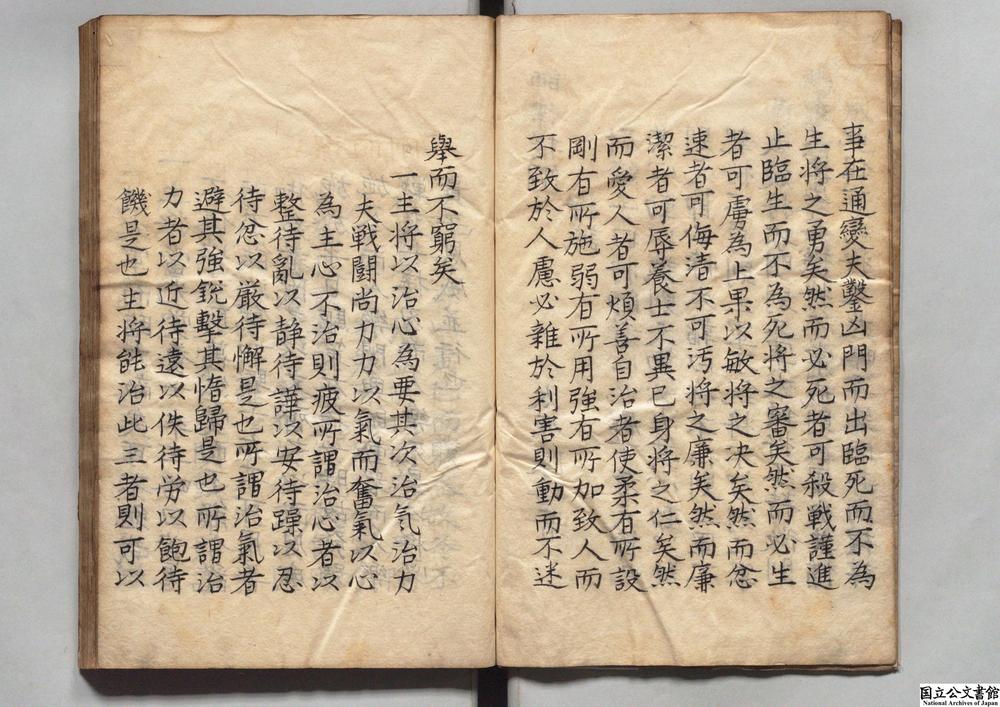 事在通變夫鑿凶門而出臨死而不為
生將之勇矣然而必死者可殺戦謹進
止臨生而不為死將之審矣然而必生
者可虜為上果以敏將之决矣然而忿
速者可侮清不可汚將之廉矣然而廉
潔者可辱養士不異已身將之仁矣然
而愛人者可煩善自治者使柔有所設
剛有所施弱有所用強有所加致人而
不致於人慮必雜於利害則動而不迷
舉而不窮矣
一主將以治心為要其次治氣治力
夫戦闘尚力力以氣而奮氣以心
為主心不治則疲所謂治心者以
整待亂以静待譁以安待躁以忍
待忿以厳待懈是也所謂治氣者
避其強銳擊其惰歸是也所謂治
力者以近待遠以佚待労以飽待
饑是也主將能治此三者則可以
国立公文書館
National Archives of Japan